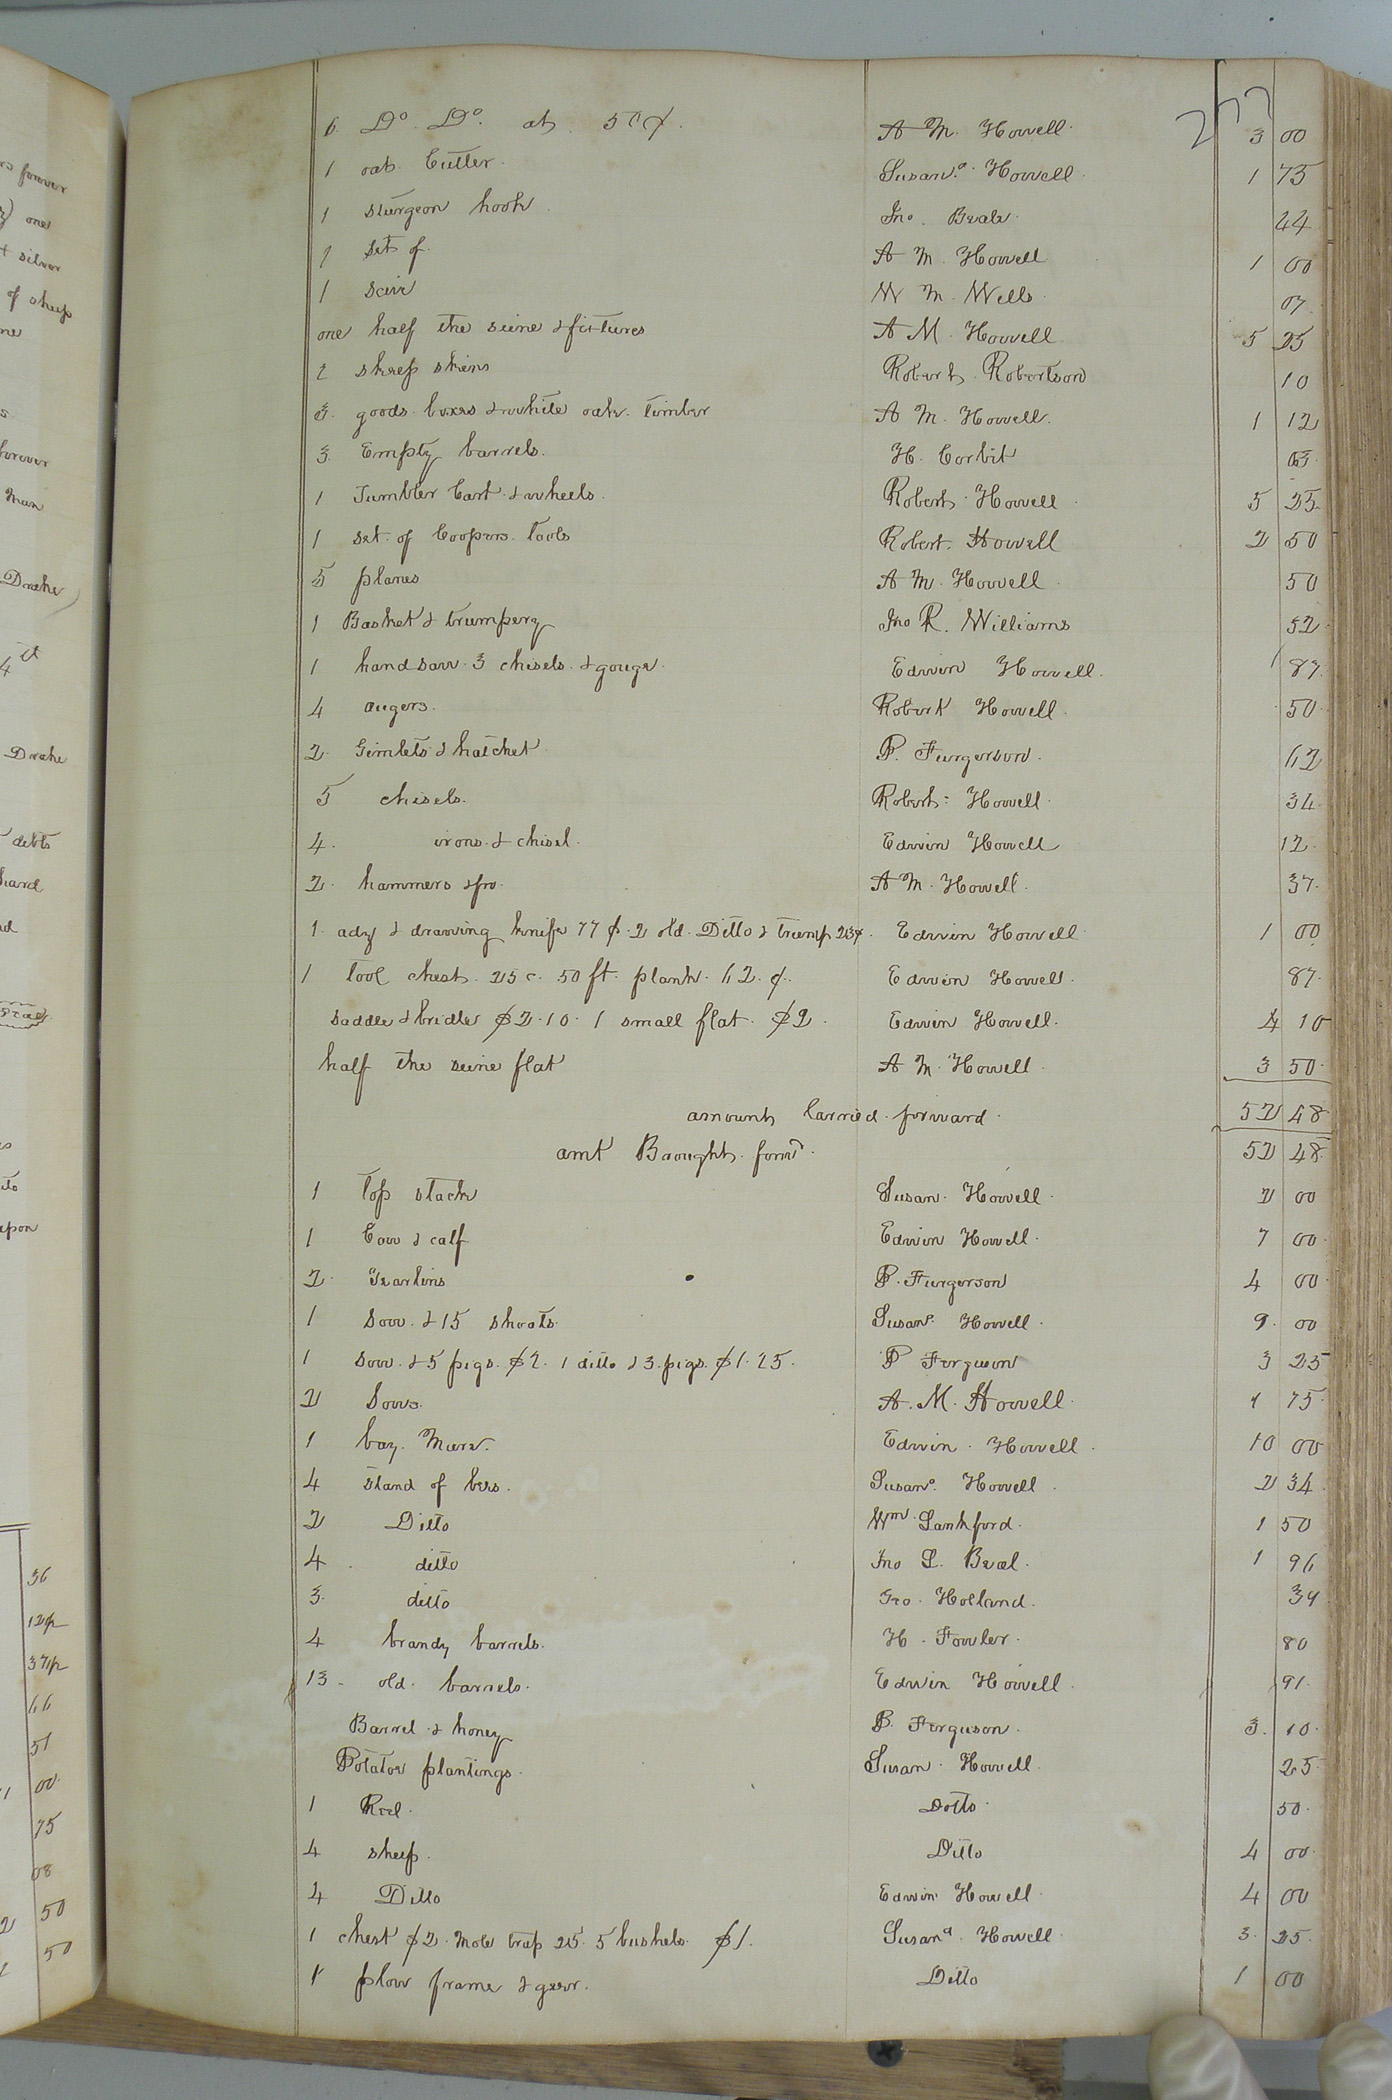 277
6 Do. Do. at 50¢. A M. Howell. 3 00
1 oat Cutter. Susana. Howell. 1 75
1 sturgeon hook. Jno. Beale 44
1 set of. A M. Howell 1 00
1 W M. Wells 07
one half the seine & fixtures A M. Howell 5 25
2 sheep skins Robert Robertson 10
3 goods boxes & white oak timber A M. Howell. 1 12
3 Empty barrels. H. Corbit
1 Tumbler Cart & wheels. Robert Howell 5 25
1 set of Coopers Tools Robert Howell 2 50
5 planes A M. Howell 50
1 Basket & trumpery Jno R. Williams 52
1 hand saw 3 chisels & gouge. Edwin Howell. 87
4 augers. Robert Howell 50
2 Gimlets & hatchet P. Furgerson. 62
5 chisels. Robert Howell 34
4. irons & chisel. Edwin Howell 12
2 hammers & fro A M. Howell. 37
1 adz & drawing knife 77¢ 2 old Ditto & trump 23¢. Edwin Howell 1 00
1 tool chest 25 c. 50 ft plank 62 ¢. Edwin Howell 87
saddle & bridle $2.10. 1 small flat $2. Edwin Howell. 4 10
half the seine flat A M. Howell. 3 50
amount Carried forward. 52 48
amt Baought forwd. 52 48
1 Top stack Susan Howell. 2 00
1 Cow & calf Edwin Howell. 7 00
2 Yearlins P. Furgerson 4 00
1 Sow & 15 shoats Susana. Howell. 9 00
1 Sow & 5 pigs $2. 1 ditto & 3 pigs $1.25. P Ferguson 3 25
2 Sows. A. M. Howell. 1 75
1 bay Mare. Edwin Howell. 10 00
4 stand of bees. Susana. Howell. 2 34
2 Ditto Wm Lankford. 1 50
4 ditto Jno L. Beal. 1 96
3 ditto Geo. Holland. 39
4 brandy barrels. H. Fowler. 80
13 old barrels. Edwin Howell. 91
Barrel & honey P. Ferguson. 3 10
Potatoe plantings. Susan Howell. 25
1 Reel. Dotto 50
4 sheep. Ditto 4 00
4 Ditto Edwin Howell. 4 00
1 chest $2. Mole trap 25. 5 bushels $1. Susana. Howell. 3 25
1 plow frame & gear. Ditto 1 00